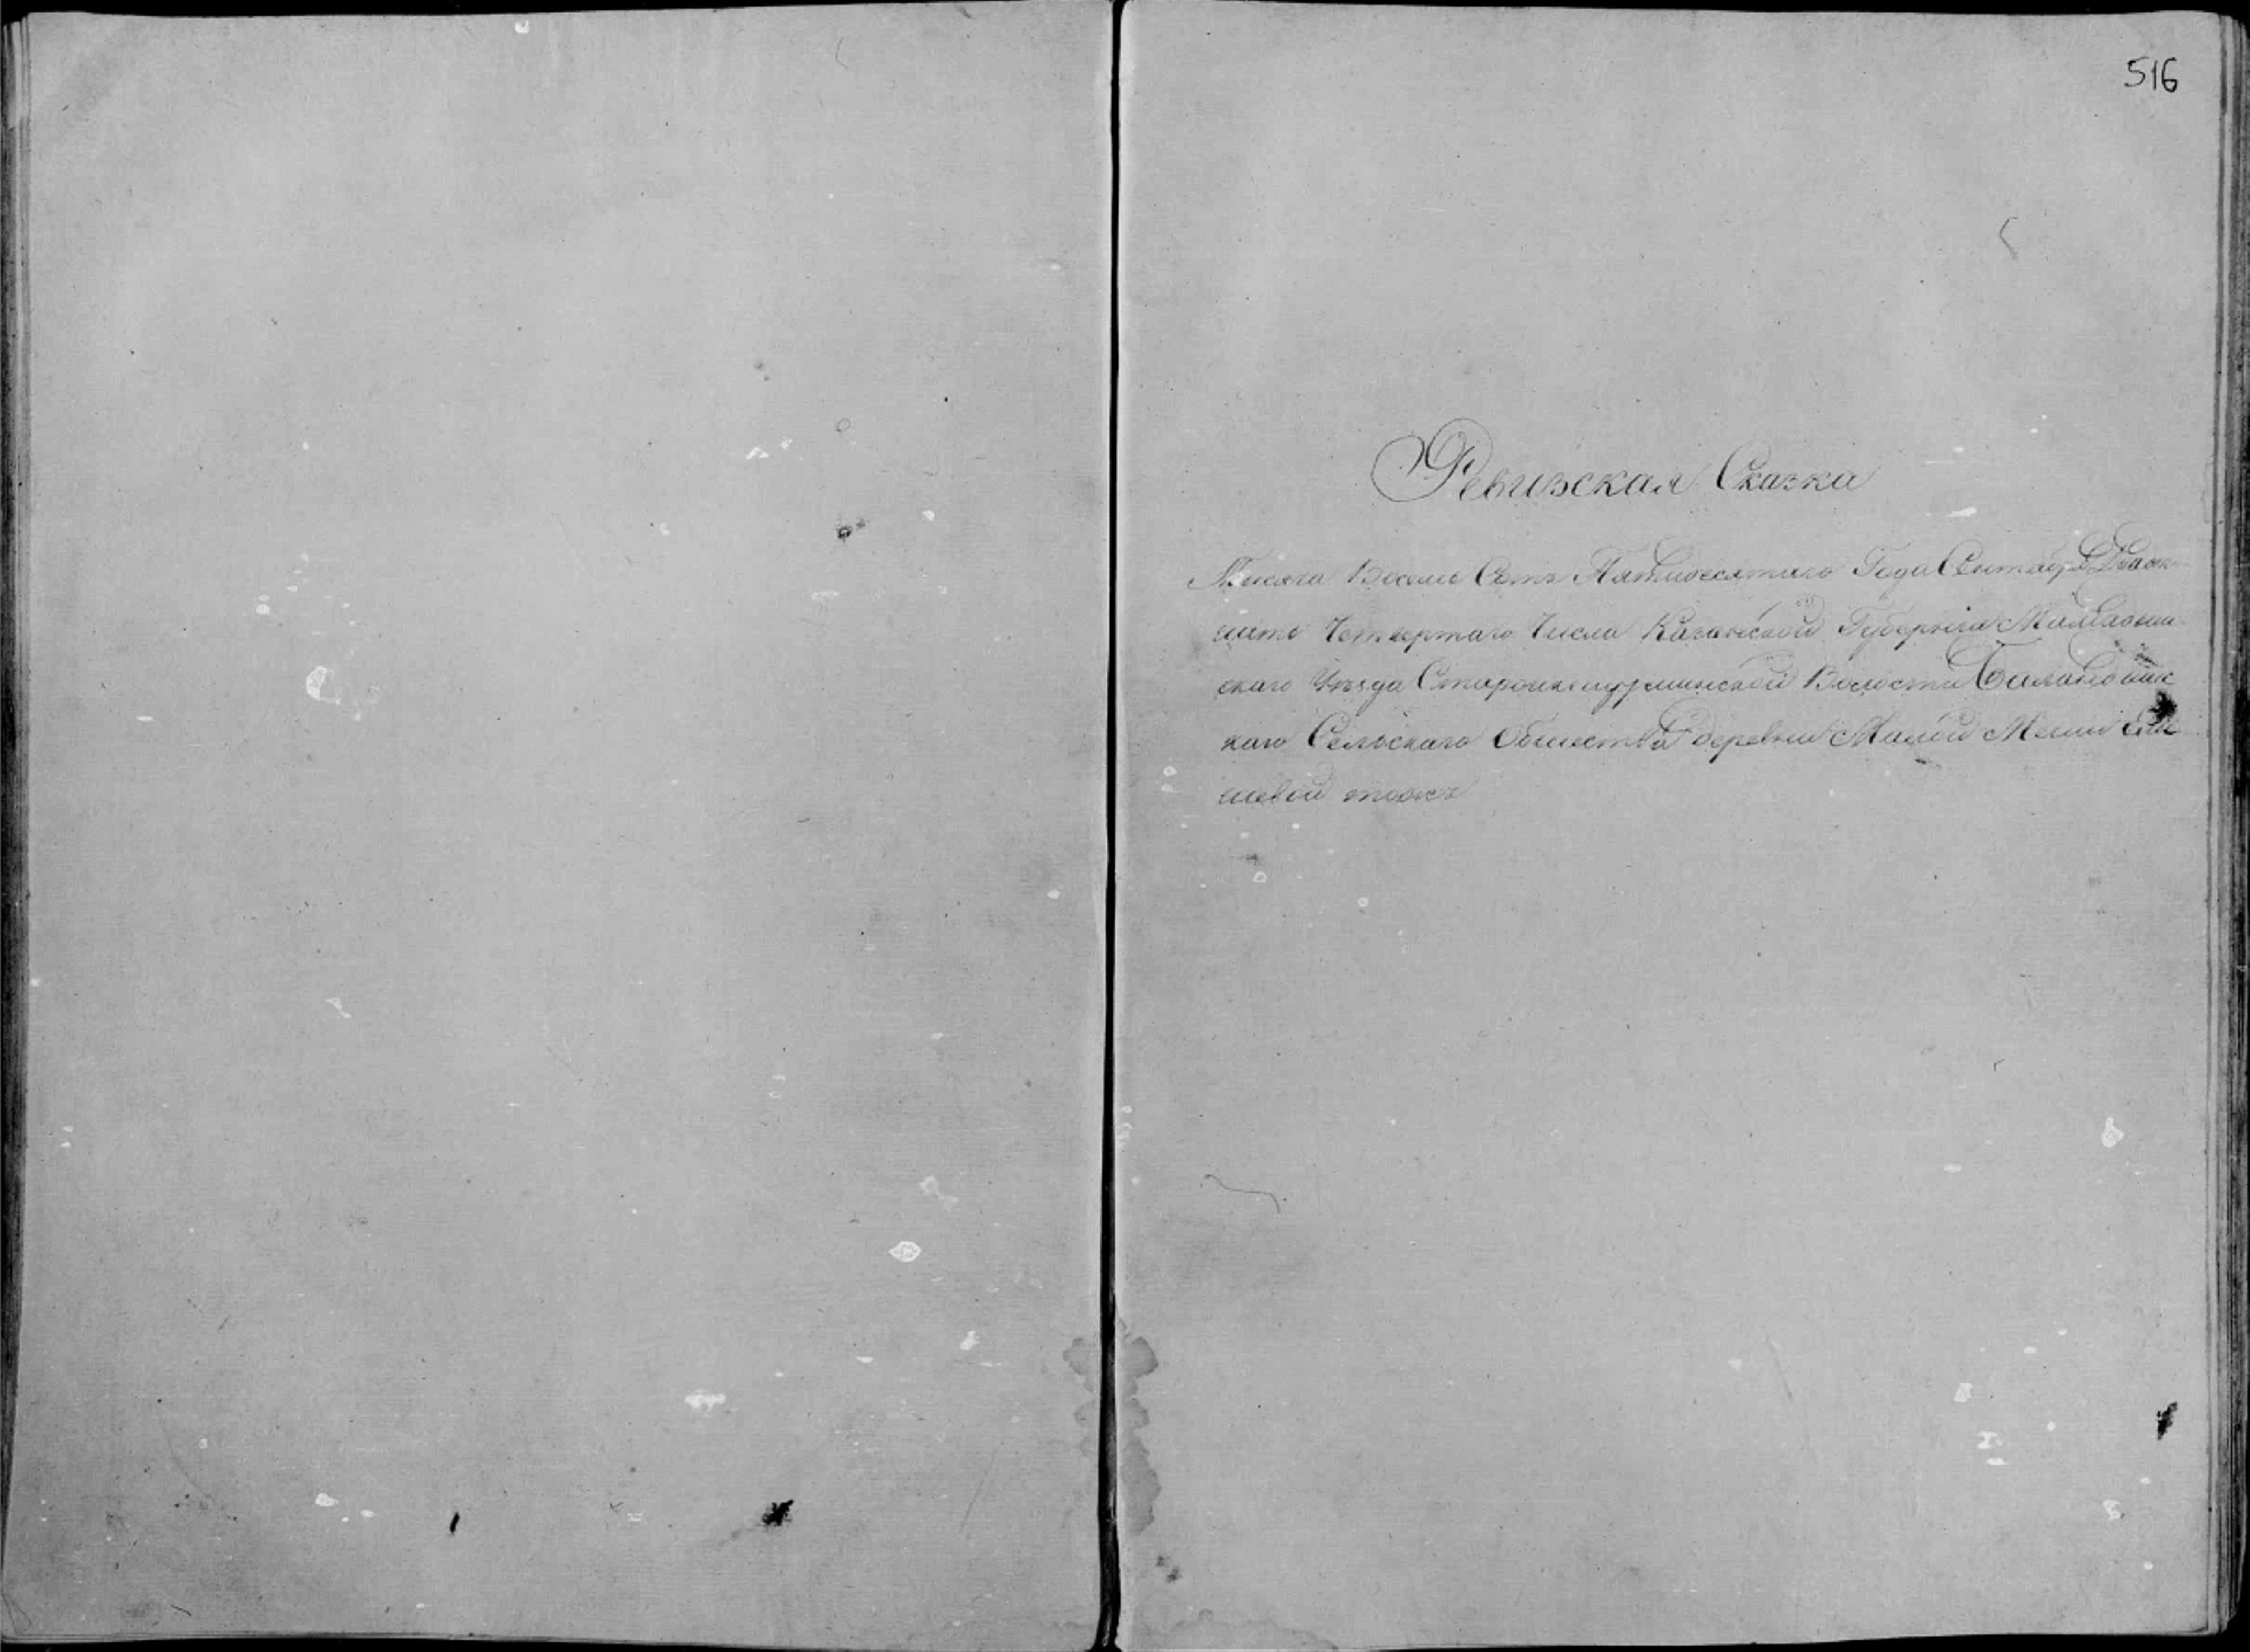 516
Ревизская Сказка
Тысяча Восемь Сотъ Пятьдесятаго Года Сентября Двад
цать Четвертаго Числа Казанской Губерніи Мамадыш
скаго Уѣзда Волости
каго Сельскаго Общества деревни Малой Меши
тожъ